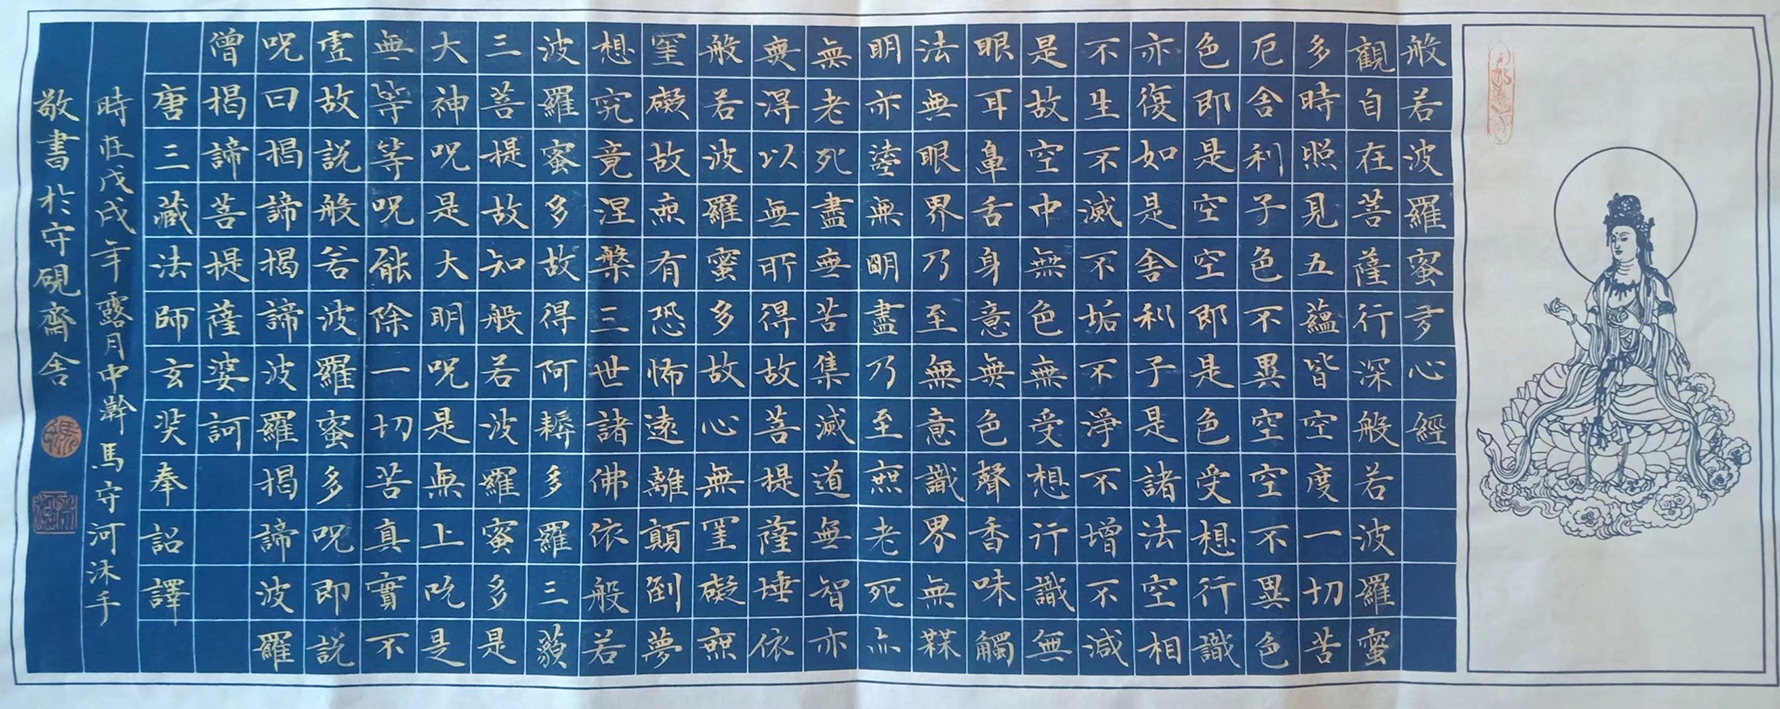 般若波羅蜜多心經
觀自在菩薩行深般若波羅蜜
多時照見五蘊皆空度一切苦
厄舍利子色不異空空不異色
色即是空空即是色受想行識
亦復如是舍利子是諸法空相
不生不滅不垢不淨不增不減
是故空中無色無受想行識無
眼耳鼻舌身意無色聲香味觸
法無眼界乃至無意識界無無
明亦無無明盡乃至無老死亦
無老死盡無苦集滅道無智亦
無得以無所得故菩提薩埵依
般若波羅蜜多故心無罣礙無
罣礙故無有恐怖遠離顛倒夢
想究竟涅槃三世諸佛依般若
波羅蜜多故得阿耨多羅三藐
三菩提故知般若波羅蜜多是
大神呪是大明呪是無上呪是
無等等呪能除一切苦真實不
虛故説般若波羅蜜多呪即説
呪曰揭諦揭諦波羅揭諦波羅
僧揭諦菩提薩婆訶
唐三藏法師玄奘奉詔譯
時在戊戌年露月中澣馬守河沐手
敬書於守硯齋舍